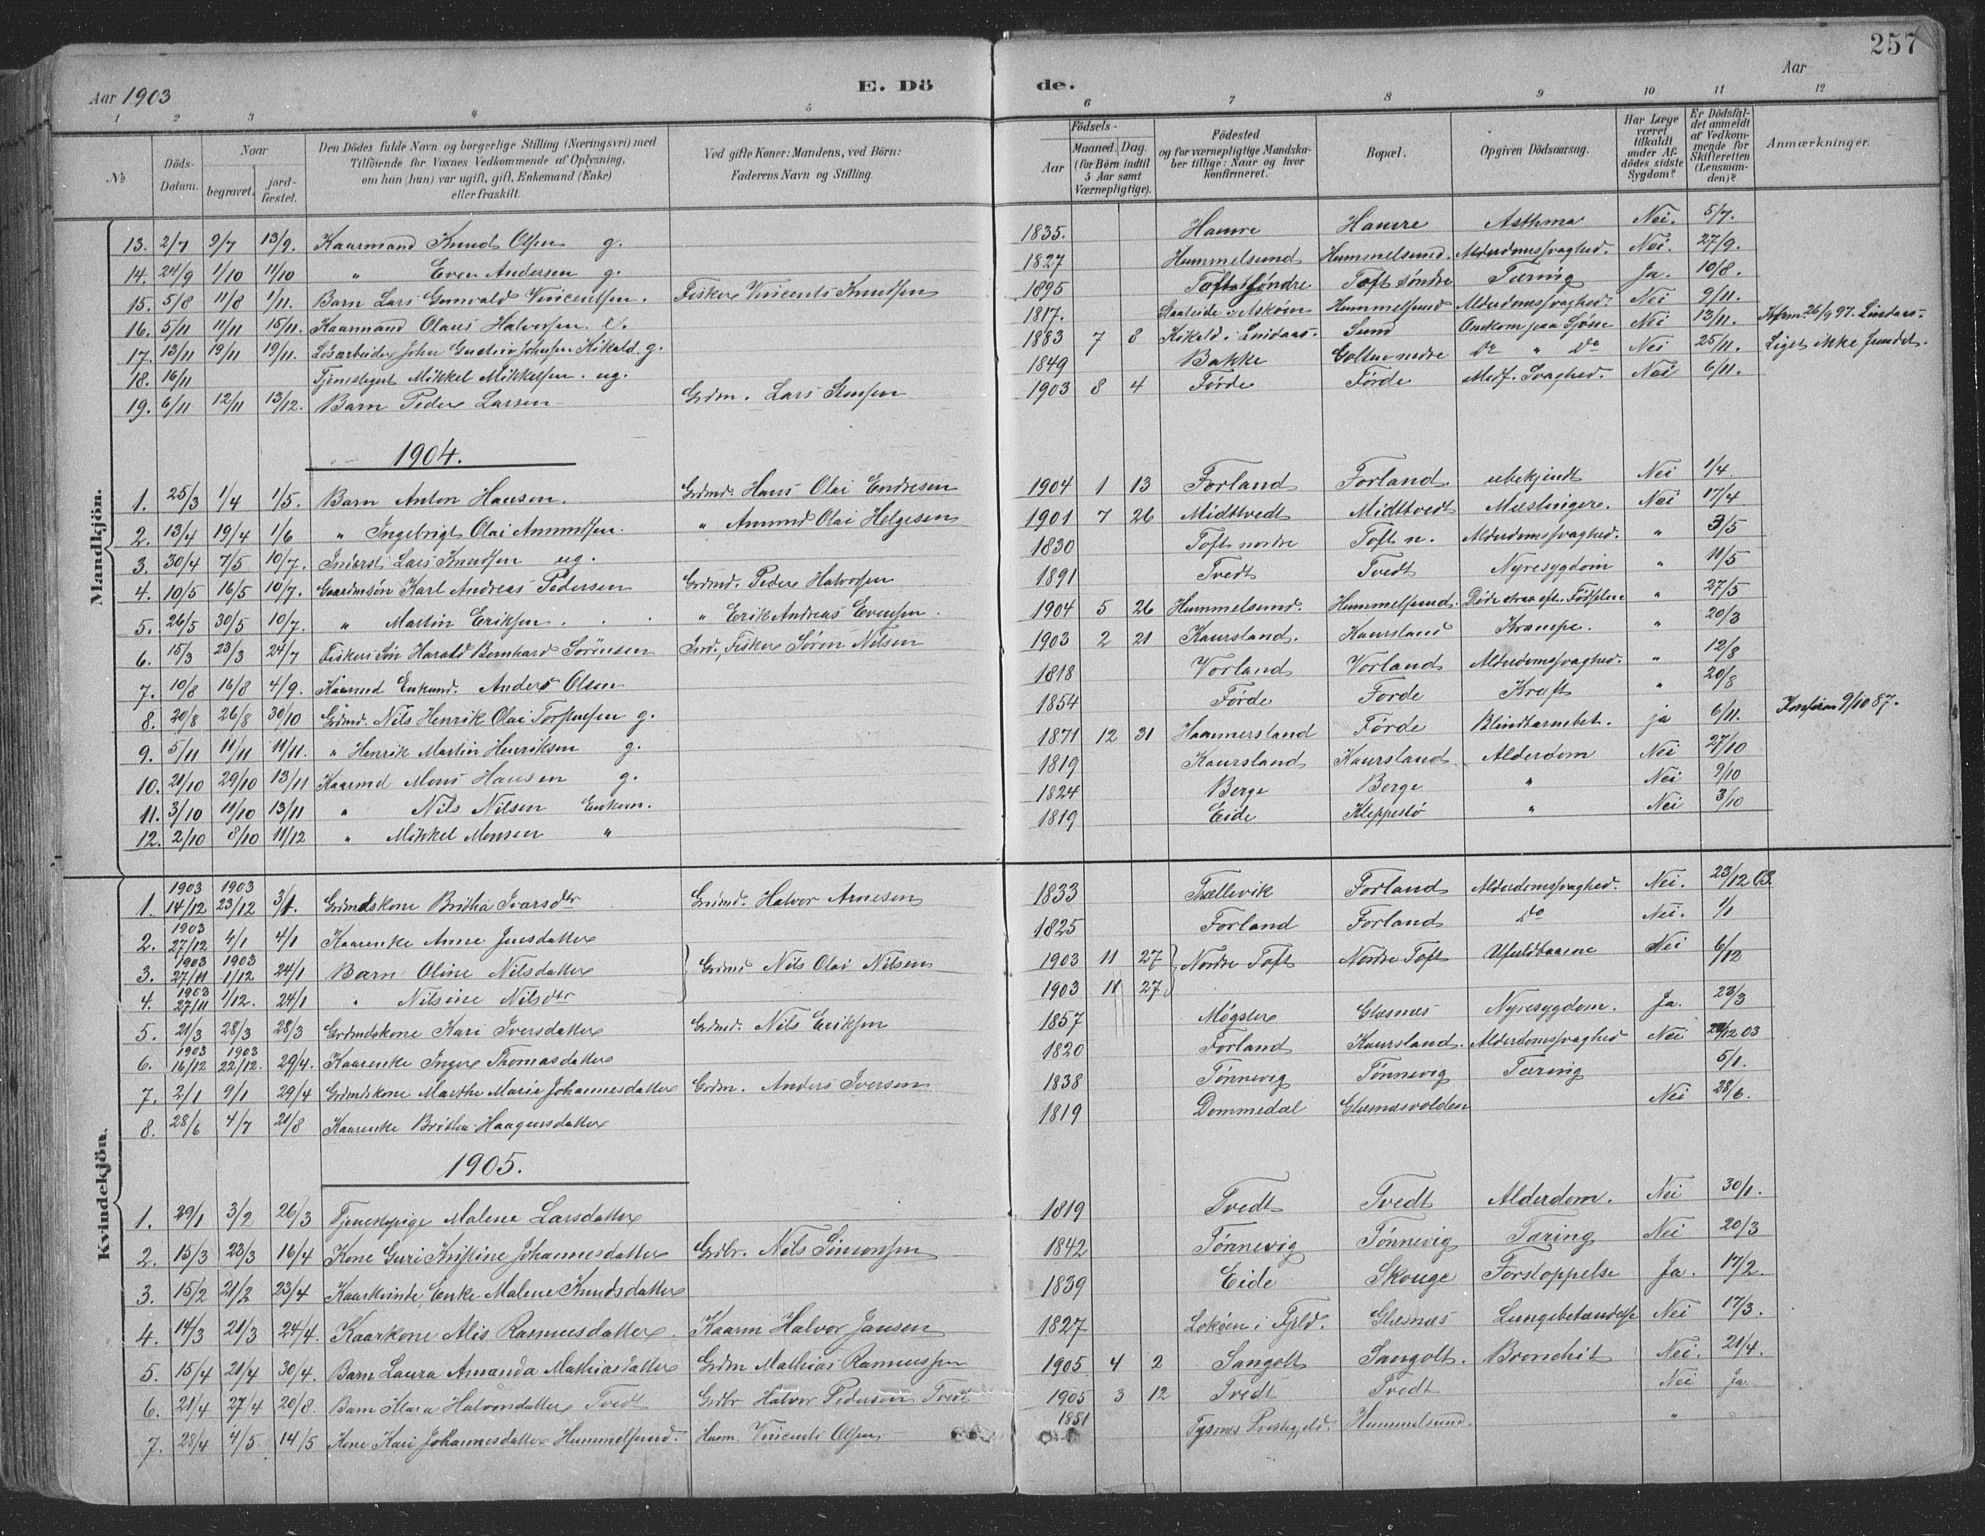 257
Aar 1903 E. Dö
de. Aar
1 2 3 4 5
6 7 8 9 10 11 12
№ Döds-Datum. Naar begravet. jordfæstet. Den Dödes fulde Navn og borgerlige Stilling (Næringsvei) med Tilföiende for Voxnes Vedkommende af Oplysning, om han (hun) var ugift, gift, Enkemand (Enke) eller fraskilt. Ved gifte Koner: Mandens, ved Börn: Faderens Navn og Stilling.
Födsels- Aar Maaned. Dag. (for Börn indtil 5 Aar samt Værnepligtige). Födested og for værnepligtige Mandskaber tillige: Naar og hvor Konfirmeret. Bopæl. Opgiven Dödsaarsag. Har Læge været tilkaldt under Afdödes sidste Sygdom? Er Dödsfaldet anmeldt af Vedkommende for Skifteretten (Lensmanden)? Anmærkninger.
Mandkjön.
13. 2/7 9/7 13/9. Kaarmand Knud Olsen g. 1835. Hamre Hamre Asthma Nei. 5/7.
14. 24/9 1/10 11/10 " Even Andersen g. 1827 Hummelsund Hummelsund Alderdomssvaghed. Nei. 27/9.
15. 5/8 11/8 1/11. Barn Lars Gunvald Vincentsen. Fisker Vincents Knudsen 1895 Toft söndre Toft söndre Tæring Ja. 10/8.
16. 5/11 11/11 15/11. Kaarmand Olaus Halvorsen e. 1817. Hummelsund Alderdomssvaghed. Nei 9/11.
17. 13/11 19/11 19/11. Lösarbeider John Gustav Johnsen Kikald. g. 1883 7 8 Kikald i Lindaas. Sund Omkom paa Sjöen Nei 13/11. Kfrm. 26/9 97. Lindaas.
18. 16/11 Tjenestegut Mikkel Mikkelsen. ug. 1849 Bakke Golten nedre Do " Do Nei 25/11. Liget ikke fundet.
19. 6/11 12/11 13/12. Barn Peder Larsen Grdm. Lars Knudsen 1903 8 4 Förde Förde Medf. Svaghed. Nei 6/11.
1904.
1. 25/3 1/4 1/5. Barn Anton Hansen. Grdmd. Hans Olai Endresen 1904 1 13 Forland Forland. ubekjendt Nei 1/4
2. 13/4 19/4 1/6 " Ingebrigt Olai Amundsen. " Amund Olai Helgesen 1901 7 26 Midttvedt Midttvedt Mæslinger. Nei 17/4
3. 30/4 7/5 10/7. Inderst Lars Knudsen ug. 1830 Toft nordre Toft n. Alderdomssvaghed. " 3/5
4. 10/5 16/5 10/7. Gaardmsön Karl Andreas Pedersen Grdmd. Peder Halvorsen 1891 Tvedt Tvedt Nyresygdom " 11/5
5. 26/5 30/5 10/7. " Martin Eriksen . . . " Erik Andreas Evensen. 1904 5 26 Hummelsund. Hummelsund. Döde strax eft. Födselen " 27/5
6. 15/3 23/3 24/7 Fiskers Sön Harald Bernhard Sörensen Ind., Fisker Sören Nilsen 1903 2 21 Kaursland. Kaursland Krampe. " 20/3
7. 10/8 16/8 4/9. Kaarmd Enkemd. Anders Olsen 1818 Vorland Vorland Alderdomssvaghed. " 12/8
8. 20/8 26/8 30/10 Grdmd. Nils Henrik Olai Torstensen g. 1854 Förde Förde Kræft " 20/8
9. 5/11 11/11 11/11. " Henrik Martin Henriksen g. 1871 12 31 Haannersland Förde Blindtarmbet. ja 6/11. Konfirm 9/10 87.
10. 21/10 29/10 13/11 Kaarmd Mons Hansen g. 1819 Kaursland Kaursland Alderdom Nei 27/10
11. 3/10 11/10 13/11 " Nils Nilsen Enkem. 1824 Berge Berge " Nei 9/10
12. 2/10 8/10 11/12 " Mikkel Monsen " 1819 Eide Kleppestö " Nei 3/10
Kvindekjön.
1. 1903 14/12 1903 23/12 3/1. Grdmdskone Britha Ivarsdtr Grdmd. Halvor Arnesen 1833 Trællevik Forland Alderdomssvaghed. Nei. 23/12 03.
2. 1903 27/12 4/1 4/1 Kaarenke Anne Jensdatter 1825 Forland Forland Do Nei. 1/1
3. 1903 27/11 1903 1/12 24/1 Barn Oline Nilsdatter Grdmd Nils Olai Nilsen 1903 11 27 Nordre Toft Nordre Toft Ufuldbaarne Nei 6/12
4. 1903 27/11 1/12. 24/1 " Nilsine Nilsdtr 1903 11 27
5. 21/3 28/3 28/3 Grdmdskone Kari Iversdatter Grdmd. Nils Eriksen 1857 Møgster Glesnæs Nyresygdom. Ja. 23/3
6. 1903 16/12 1903 22/12. 29/4. Kaarenke Inger Thomasdatter 1820 Forland Kaursland. Alderdomssvaghed Nei 22/12 03
7. 2/1 9/1 29/4 Grdmdskone Marthe Maria Johannesdatter Grdm. Anders Iversen 1838 Tönnevig Tönnevig Tæring 5/1.
8. 28/6 4/7 21/8 Kaarenke Britha Haagensdatter 1819 Dommedal Glesnæsvolden Nei 28/6.
1905.
1. 29/1 3/2 26/3 Tjenestepige Malene Larsdatter 1819 Tvedt Tvedt Alderdom. Nei 30/1.
2. 15/3 23/3 16/4 Kone Guri Kristine Johannesdatter Grdbr. Nils Simonsen 1842 Tönnevig Tönnevig Tæring Nei 20/3
3. 15/2 21/2 23/4 Kaarkvinde, Enke Malene Knudsdatter 1839 Eide Skouge Forstoppelse Ja. 17/2.
4. 14/3 21/3 24/4. Kaarkone Alis Rasmusdatter. Kaarm Halvor Jansen 1827 Loköen i Fjeld. Glesnæs Lungebetændelse Nei 17/3.
5. 15/4 21/4 30/4. Barn Laura Amanda Mathiasdatter Grdm Mathias Rasmussen 1905 4 2 Sangolt Sangolt. Bronchit Nei. 21/4.
6. 21/4 27/4 20/8. Barn Klara Halvorsdatter Tvedt Grdbr Halvor Pedersen Tvedt 1905 3 12 Tvedt Tvedt Nei Ja.
7. 28/4 4/5 14/5 Kone Kari Johannesdatter Hummelsund. Husm. Vincents Olsen 1851 Tysnes Prestegjeld Hummelsund. " "